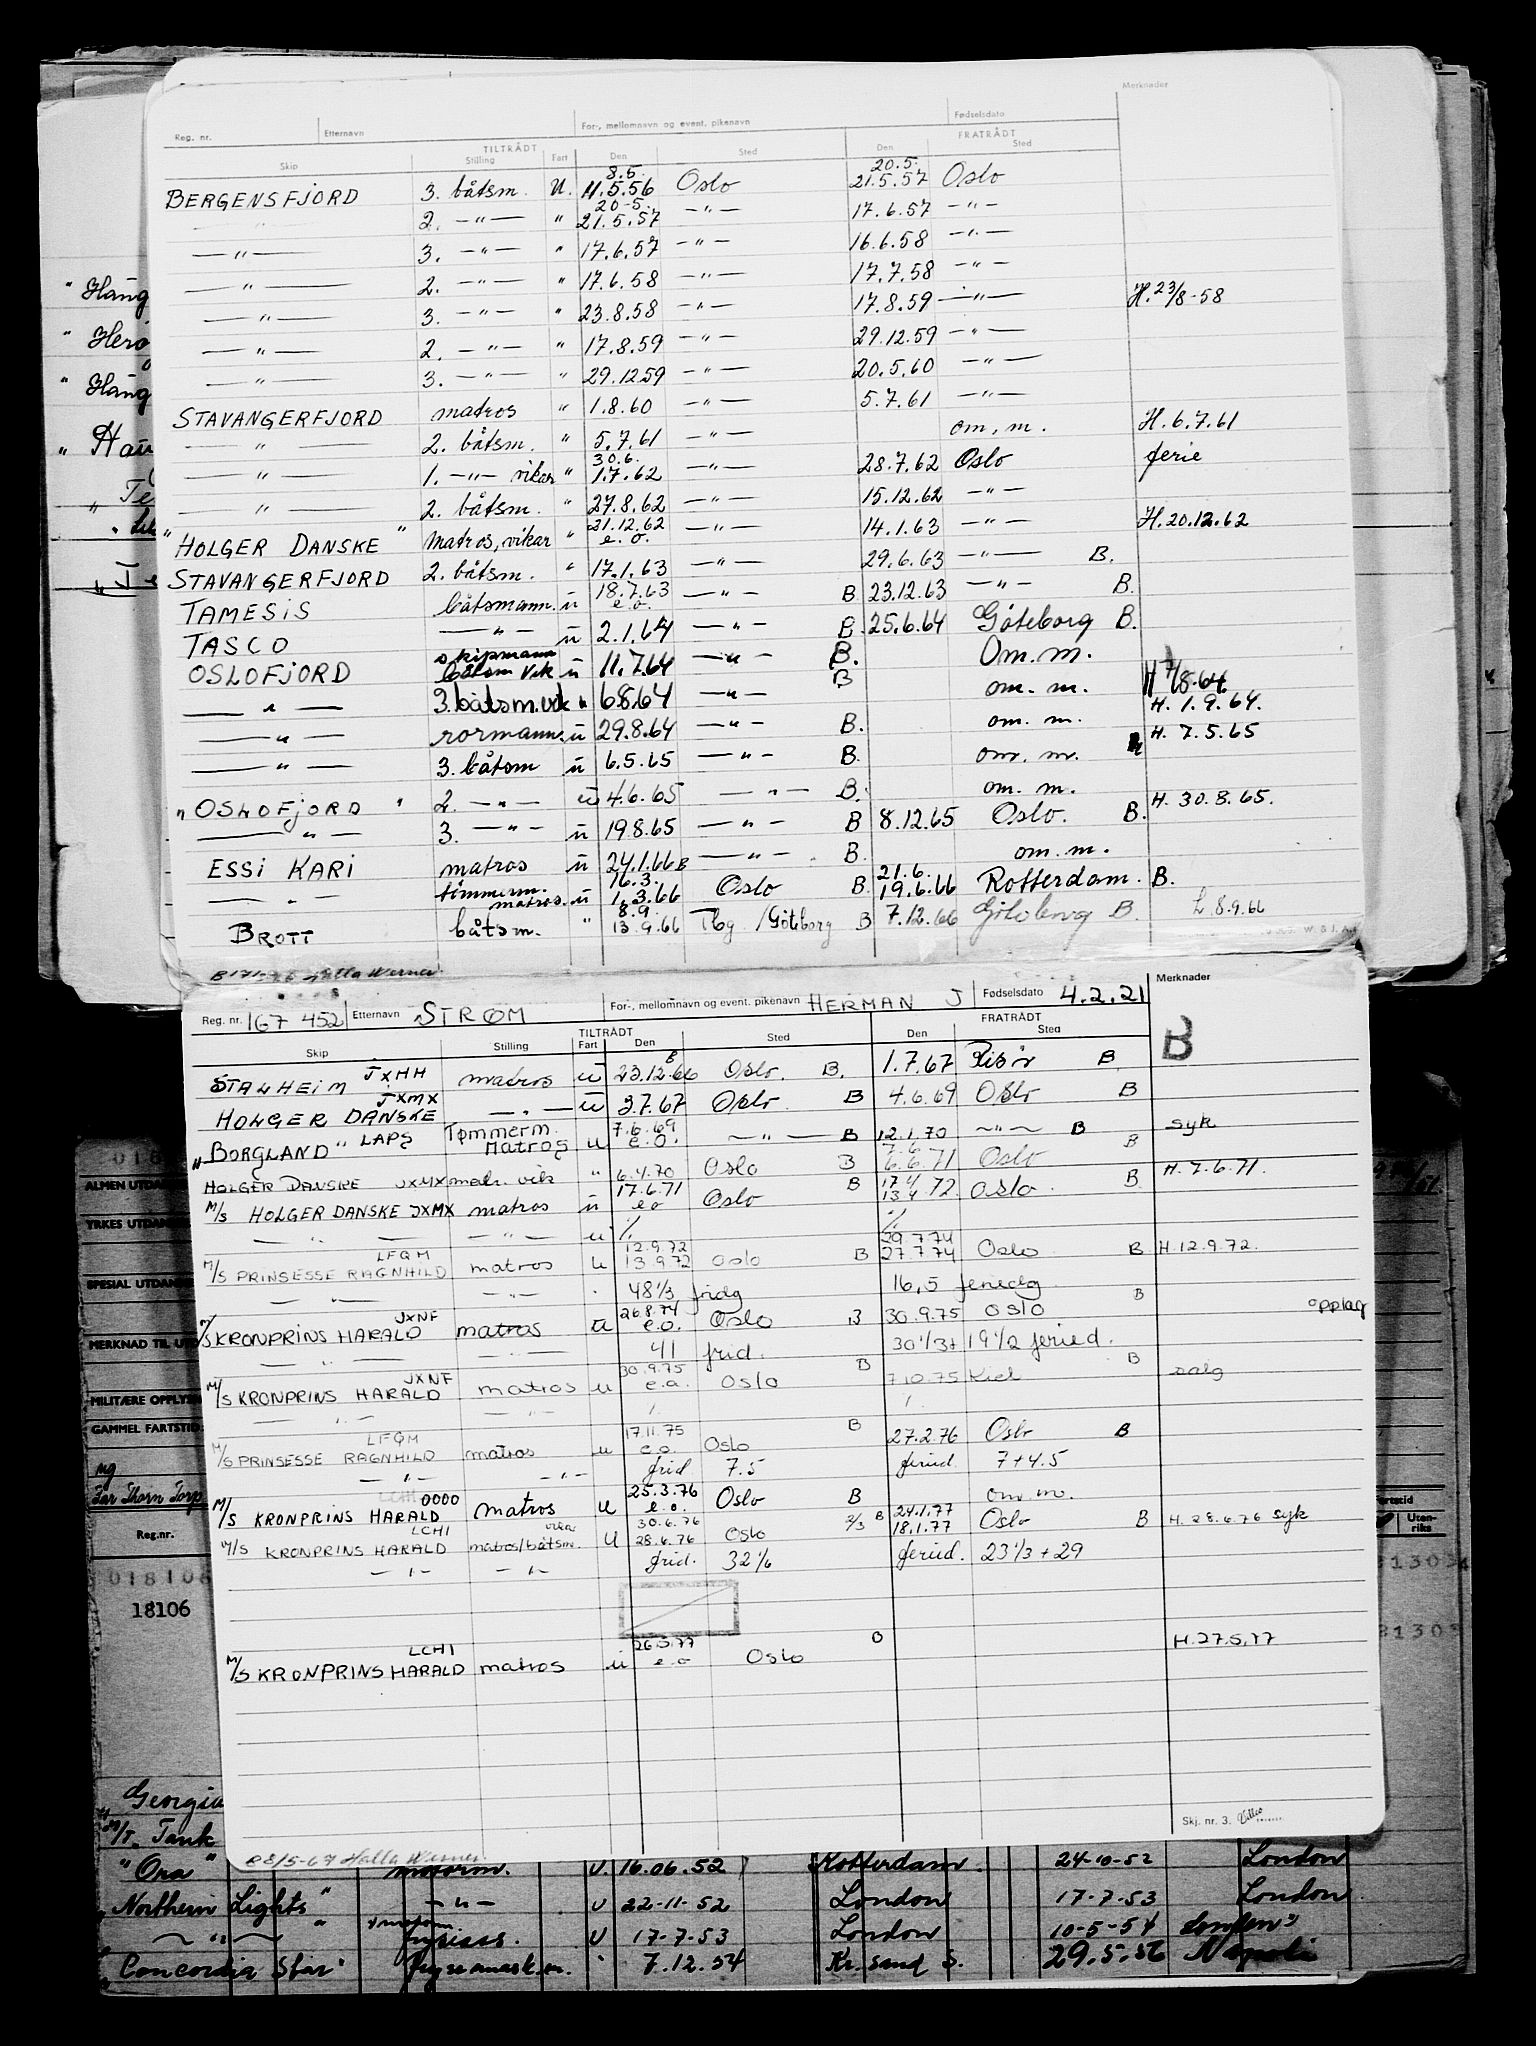 Merknader
Reg. nr. Etternavn For-, mellomnavn og event. pikenavn Fødselsdato
TILTRÅDT FRATRÅDT
Skip Stilling Fart Den Sted Den Sted
8.5. 20.5.
BERGENSFJORD 3. båtsm. U. 11.5.56 Oslo 21.5.57 Oslo
20-5.
2. —"— " 21.5.57 —"— 17.6.57 —"—
—"— 3. —"— " 17.6.57 —"— 16.6.58 —"—
—"— 2. —"— " 17.6.58 —"— 17.7.58 —"—
—"— 3. —"— " 23.8.58 —"— 17.8.59 —"— H. 23/8-58
—"— 2. —"— " 17.8.59 —"— 29.12.59 —"—
—"— 3. —"— " 29.12.59 —"— 20.5.60 —"—
STAVANGERFJORD matros " 1.8.60 —"— 5.7.61 —"—
—"— 2. båtsm. " 5.7.61 —"— om. m. H. 6.7.61
30.6.
—"— 1. —"— vikar " 1.7.62 —"— 28.7.62 Oslo ferie
—"— 2. båtsm. " 27.8.62 —"— 15.12.62 —"—
21.12.62
"HOLGER DANSKE" matros, vikar " e.o. —"— 14.1.63 —"— H. 20.12.62
STAVANGERFJORD 2. båtsm. " 17.1.63 —"— 29.6.63 —"— B.
18.7.63
TAMESIS båtsmann. u e.o. —"— B 23.12.63 —"— B.
TASCO —"— u 2.1.64 —"— B. 25.6.64 Göteborg B.
skipmann
OSLOFJORD båtsm vik u 11.7.64 —"— B. Om. m.
—"— 3. båtsm. vik u 6.8.64 —"— B om. m. H 7/8-64
—"— rormann. u 29.8.64 —"— B. om. m. H. 1.9.64.
—"— 3. båtsm u 6.5.65 —"— B. om. m. H. 7.5.65
"OSLOFJORD" 2. —"— u 4.6.65 —"— B. om. m.
—"— 3. —"— u 19.8.65 —"— B 8.12.65 Oslo. B. H. 30.8.65.
ESSI KARI matros u 24.1.66 B —"— B. om. m.
tømmerm. 16.3. 21.6.
—"— matros. u 1.3.66 Oslo B. 19.6.66 Rotterdam. B.
8.9.
BROTT båtsm. " 13.9.66 Tbg /Göteborg B 7.12.66 Göteborg B. L 8.9.66
Halla Werner
Reg. nr. 167 452 Etternavn STRØM For-, mellomnavn og event. pikenavn HERMAN J Fødselsdato 4.2.21 Merknader
TILTRÅDT FRATRÅDT
Skip Stilling Fart Den Sted Den Sted
B
STALHEIM JXHH matros u 23.12.66 Oslo. B. 1.7.67 Risör B
JXMX
HOLGER DANSKE —"— u 3.7.67 Oslo B 4.6.69 Oslo B
Tømmerm. 7.6.69
"BORGLAND" LAPS Matros u e.o. —"— B 12.1.70 —"— B syk
7.6.
HOLGER DANSKE JXMX matr. vik " 6.4.70 Oslo B 6.6.71 Oslo B
17.6.71 17 4
M/S HOLGER DANSKE JXMX matros u eo Oslo B 13 4 72 Oslo B H. 7.6.71.
—"— —"— u ⁒ ⁒
LFQM 12.9.72 29.7.74
M/S PRINSESSE RAGNHILD matros u 13.9.72 Oslo B 27.7.74 Oslo B H. 12.9.72.
—"— —"— 48 1/3 fridg 16,5 feriedg
JXNF 26.8.74 B
M/S KRONPRINS HARALD matros u e.o. Oslo B 30.9.75 Oslo opplag
—"— —"— 41 frid. 30 1/3 + 19 1/2 feried.
JXNF 30.9.75 B
M/S KRONPRINS HARALD matros u e.o. Oslo 7.10.75 Kiel B salg
—"— —"—
LFQM 17.11.75 B
M/S PRINSESSE RAGNHILD matros u e.o. Oslo 27.2.76 Oslo B
—"— —"— frid 7.5 feried. 7+4.5
0000 25.3.76
M/S KRONPRINS HARALD matros u e.o. Oslo B om. m.
LCHI vikar 30.6.76 24.1.77
M/S KRONPRINS HARALD matros/båtsm. U 28.6.76 Oslo 2/3 B 18.1.77 Oslo B H. 28.6.76 syk
—"— —"— frid. 32 1/6 feried. 23 1/3 + 29
LCHI 26.5.77 B
M/S KRONPRINS HARALD matros u e.o Oslo H. 27.5.77
Skj. nr. 3.
Halla Werner
"Häng
"Hero
"Häng
ALMEN UTDAN
YRKES UTDAN
SPESIAL UTDAN
MERKNAD TIL UT
MILITÆRE OPPLYS
GAMMEL FARTSTID
Reg.nr. Uten-riks
018106
18106
Georgia
M/T. Tank
"Ora" motorm. U. 16.06.52 Rotterdam. 24-10-52 London
Northern Lights" —"— U 22-11-52 London 17-7-53 London
—"— " U 17-7-53 London 10-5-54 London
"Concordia Star" " 7.12.54 Kr. sand S. 29.5.56 Napoli